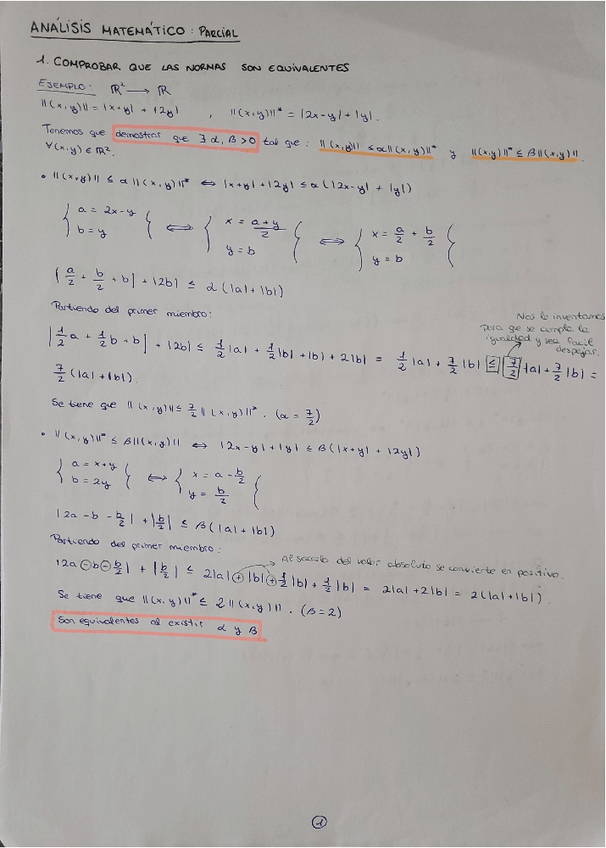 ANÁLISIS MATEMÁTICO: PARCIAL
1. COMPROBAR QUE LAS NORMAS SON EQUIVALENTES
EJEMPLO: ℝ² → ℝ
||(x,y)|| = |x+y| + |2y| , ||(x,y)||* = |2x-y| + |y|.
Tenemos que demostrar que ∃ α, β > 0 tal que: ||(x,y)|| ≤ α||(x,y)||* y ||(x,y)||* ≤ β||(x,y)||
∀(x,y) ∈ ℝ².
• ||(x,y)|| ≤ α||(x,y)||* ⟺ |x+y| + |2y| ≤ α(|2x-y| + |y|)
{ a = 2x-y } ⟺ { x = (a+y)/2 } ⟺ { x = a/2 + b/2
{ b = y } ⟺ { y = b } ⟺ { y = b
|a/2 + b/2 + b| + |2b| ≤ α(|a| + |b|)
Partiendo del primer miembro:
Nos lo inventamos
para que se cumpla la
igualdad y sea fácil
despejar.
|1/2 a + 1/2 b + b| + |2b| ≤ 1/2 |a| + 1/2 |b| + |b| + 2|b| = 1/2 |a| + 7/2 |b| ≤ 7/2 |a| + 7/2 |b| =
7/2 (|a| + |b|)
Se tiene que ||(x,y)|| ≤ 7/2 ||(x,y)||*. (α = 7/2)
• ||(x,y)||* ≤ β||(x,y)|| ⟺ |2x-y| + |y| ≤ β(|x+y| + |2y|)
{ a = x+y } ⟺ { x = a - b/2
{ b = 2y } ⟺ { y = b/2
|2a - b - b/2| + |b/2| ≤ β(|a| + |b|)
Partiendo del primer miembro:
Al sacarlo del valor absoluto se convierte en positivo.
|2a - b - b/2| + |b/2| ≤ 2|a| + |b| + 1/2 |b| + 1/2 |b| = 2|a| + 2|b| = 2(|a| + |b|)
Se tiene que ||(x,y)||* ≤ 2||(x,y)||. (β = 2)
Son equivalentes al existir α y β
1